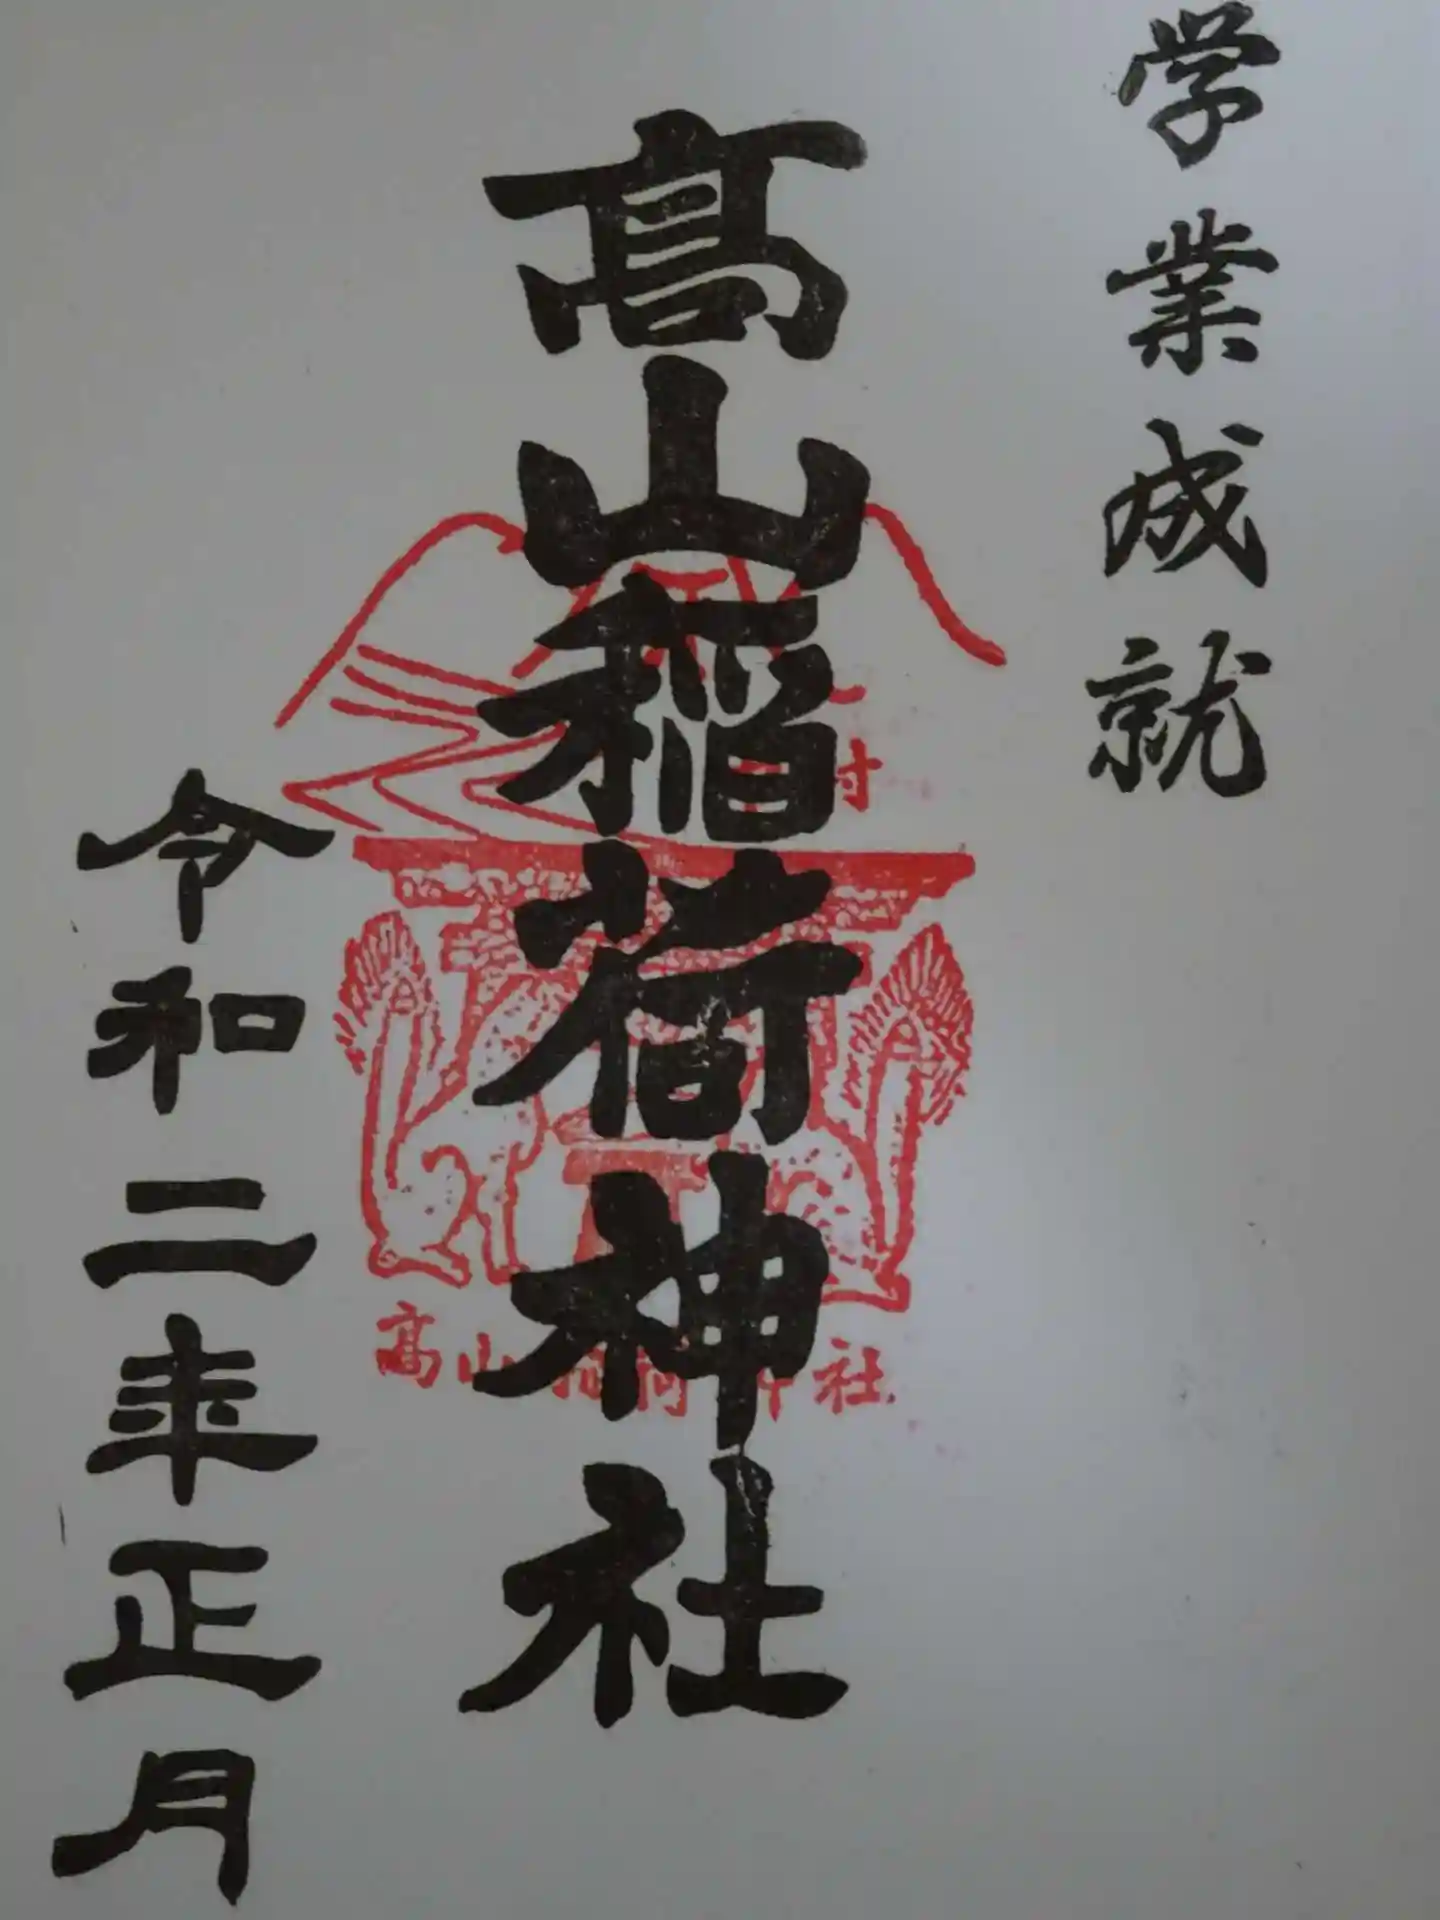 学業成就
髙山稲荷神社
高山稲荷神社
令和二年正月